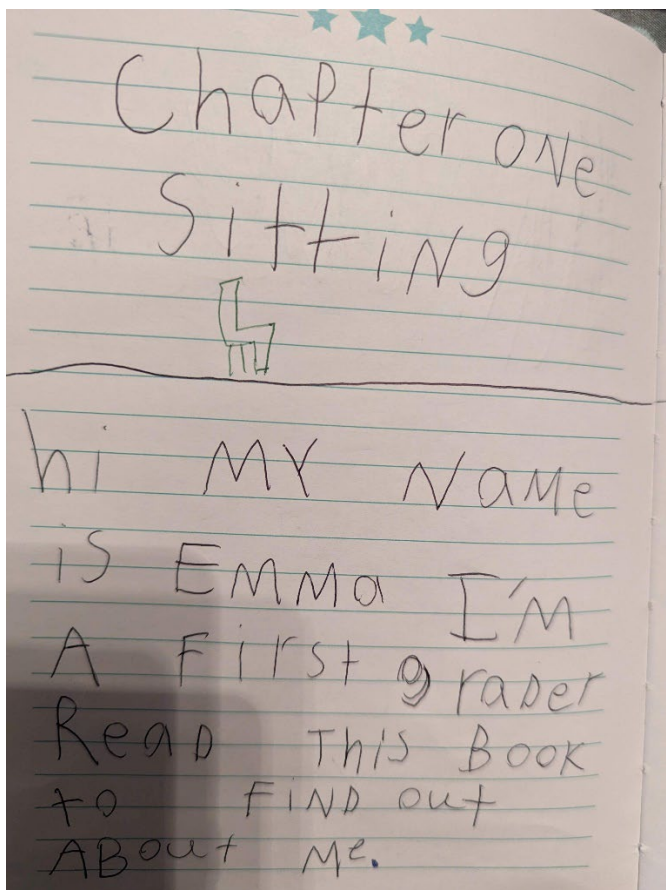 ChaPter oNe
SittiNg
hi MY NaMe
is EMMa I'M
A First graDer
ReaD This Book
to FiND out
ABout Me.